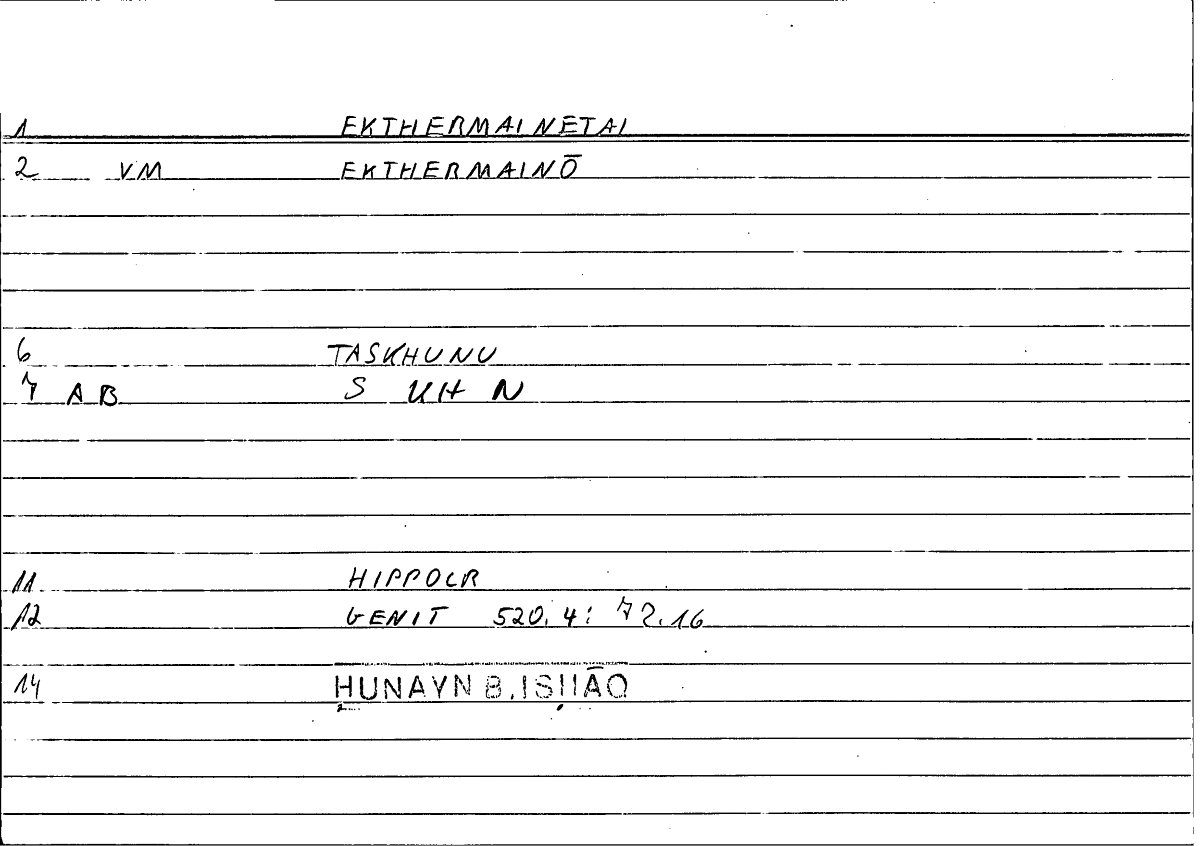 1 EKTHERMAINETAI
2 VM EKTHERMAINŌ
6 TASKHUNU
7 AB S KH N
11 HIPPOCR
12 GENIT 520.4: 72.16
14 ḤUNAYN B. ISḤĀQ